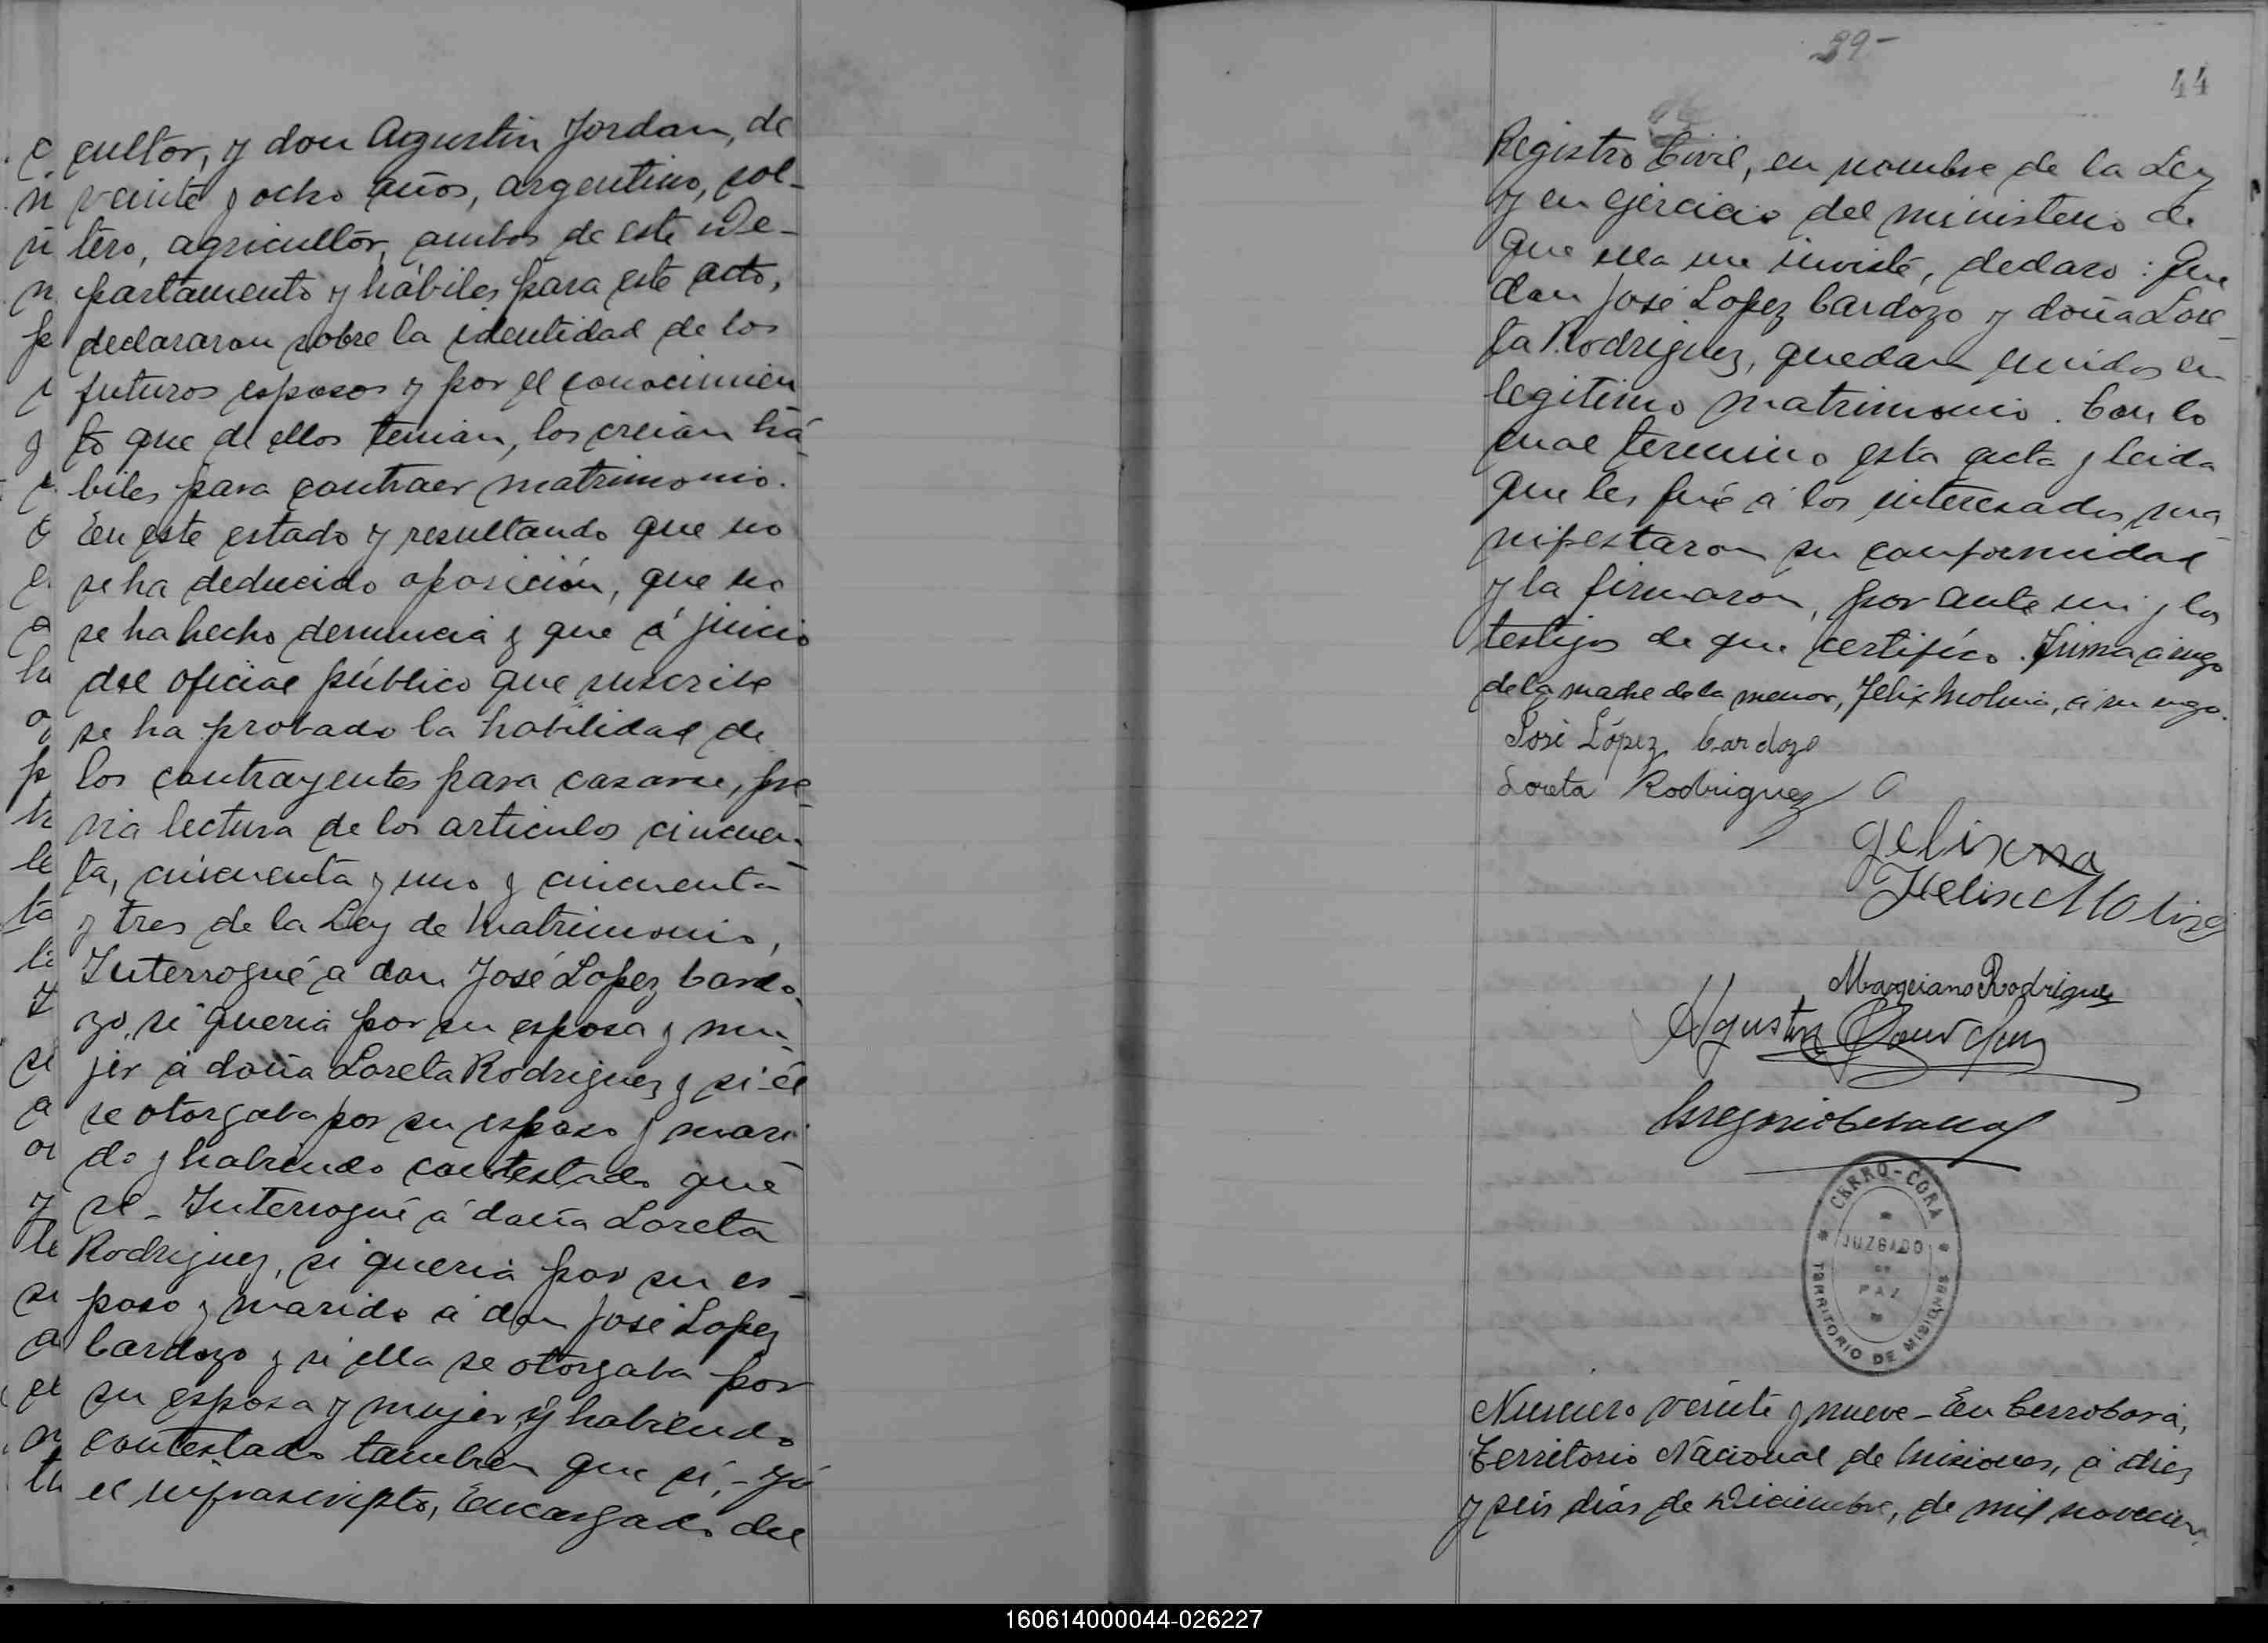 cultor, y don Agustin Jordan, de
veinte y ocho años, argentino, sol-
tero, agricultor, ambos de este De-
partamento y hábiles para este acto,
declararon sobre la identidad de los
futuros esposos y por el conocimien
to que de ellos tenian, los creian há-
biles para contraer matrimonio.
En este estado y resultando que no
se ha deducido oposición, que no
se ha hecho denuncia y que á juicio
del oficial público que suscribe
se ha probado la habilidad de
los contrayentes para casarse, pre-
via lectura de los articulos cincuen-
ta, cincuenta y uno y cincuenta
y tres de la Ley de Matrimonio,
Interrogué a don José Lopez Cardo-
zo, si queria por su esposa y mu-
jer á doña Loreta Rodriguez y si él
se otorgaba por su esposo y mari
do y habiendo contestado que
si - Interrogué á doña Loreta
Rodriguez, si queria por su es-
poso y marido á don José Lopez
Cardozo y si ella se otorgaba por
su esposa y mujer, y habiendo
contestado tambien que sí, - Yo
el infrascripto, Encargado del
39-
44
Registro Civil, en nombre de la Ley
y en ejercicio del ministerio de
que ella me inviste, declaro: Que
don José Lopez Cardozo y doña Lore-
ta Rodriguez, quedan unidos en
legitimo matrimonio. Con lo
cual termino esta acta y leida
que les fué á los interesados ma-
nifestaron su conformidad
y la firmaron, por ante mi y los
testigos de que certifico. Firma a ruego
de la madre de la menor, Felix Molina, á su ruego.
José López Cardozo
Loreta Rodriguez
Marciano Rodriguez
Agustin
CERRO-CORÁ
JUZGADO
DE
PAZ
TERRITORIO DE MISIONES
Número veinte y nueve - En Cerro Corá,
Territorio Nacional de Misiones, á diez
y seis dias de Diciembre, de mil novecien-
160614000044-026227